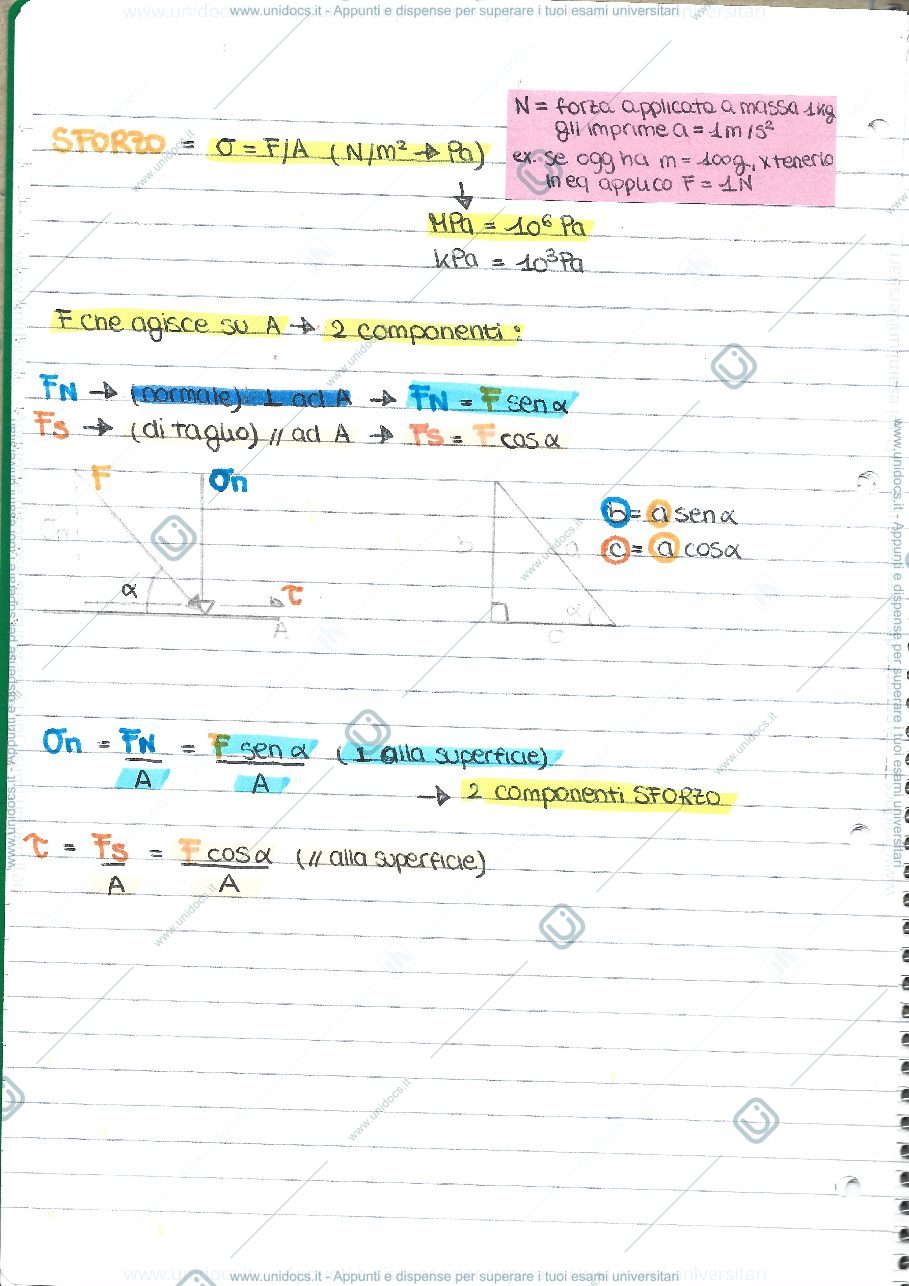 www.unidocs.it - Appunti e dispense per superare i tuoi esami universitari
N = forza applicata a massa 1kg
gli imprime a = 1m/s²
SFORZO = σ = F/A (N/m² → Pa)
ex. se ogg ha m = 100g, x tenerlo
in eq applico F = 1N
↓
MPa = 10⁶ Pa
kPa = 10³Pa
F che agisce su A → 2 componenti :
FN → (normale) ⊥ ad A → FN = F sen α
FS → (di taglio) // ad A → FS = F cos α
F σn
b = a sen α
c = a cos α
α τ
A
b a
α
c
σn = FN/A = F sen α/A (⊥ alla superficie)
→ 2 componenti SFORZO
τ = FS/A = F cos α/A (// alla superficie)
www.unidocs.it - Appunti e dispense per superare i tuoi esami universitari